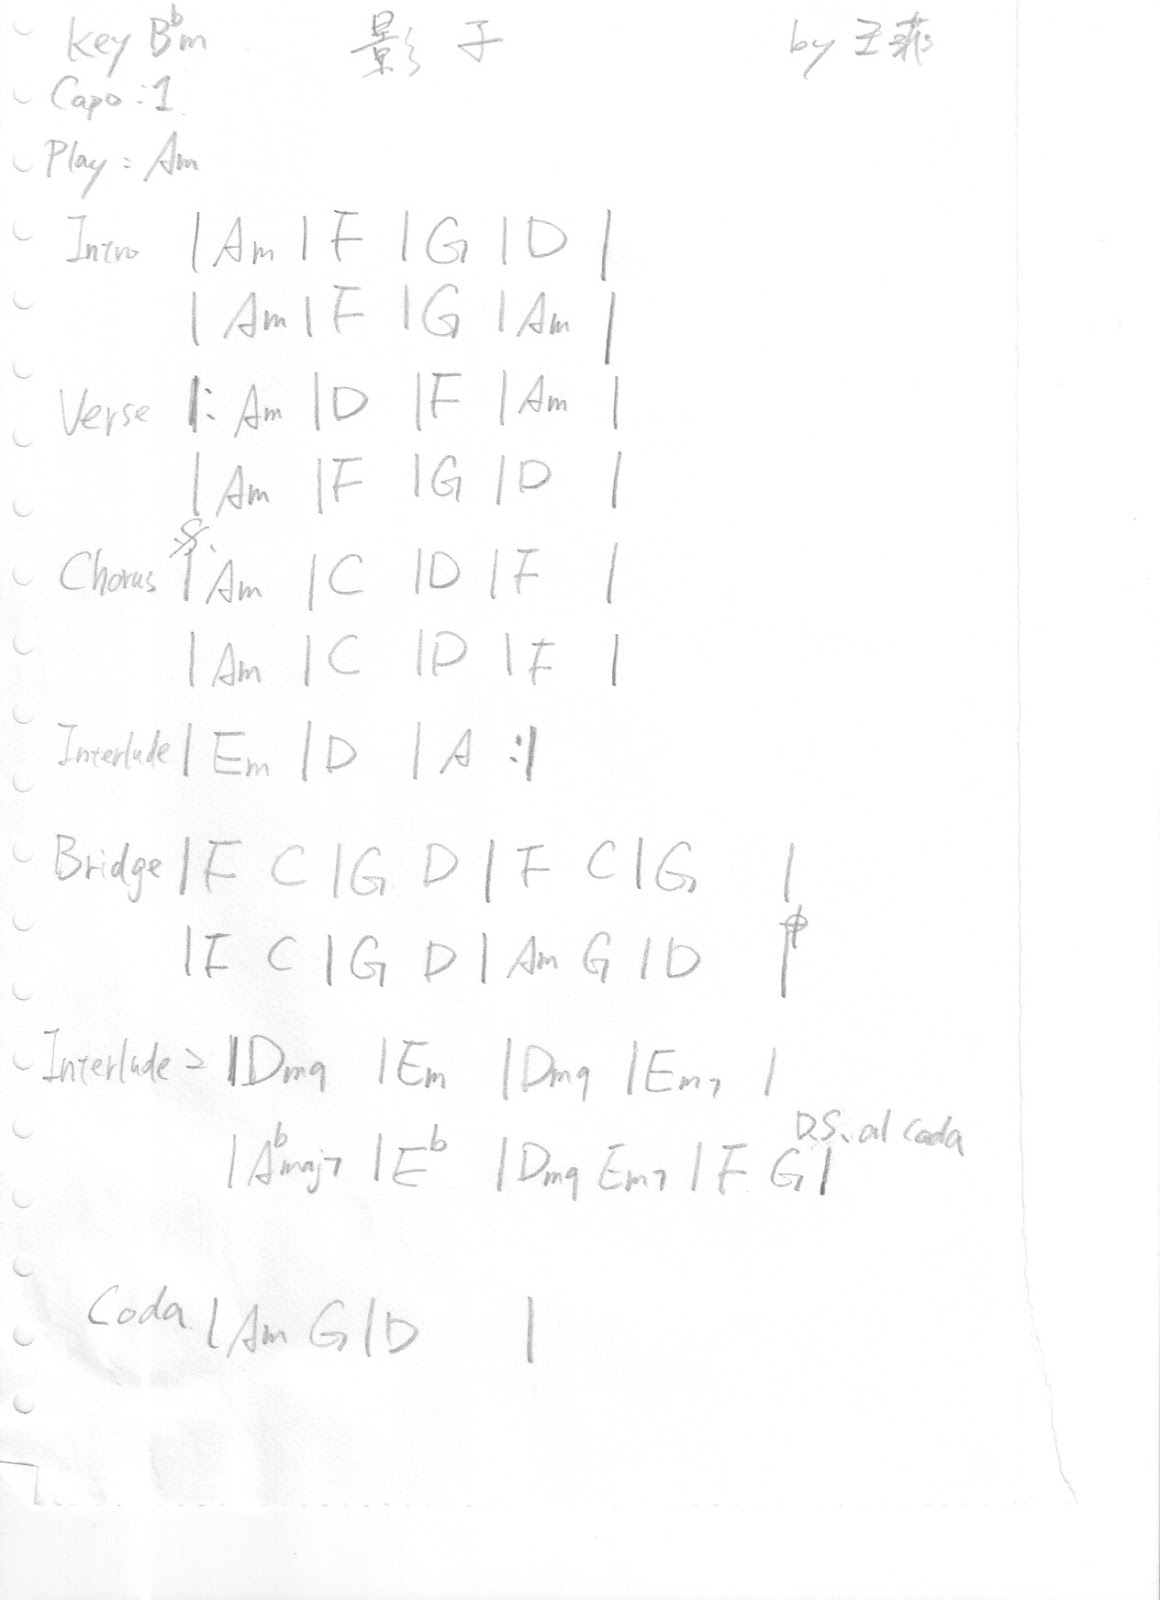 key B♭m 影子 by 王菲
Capo:1
Play: Am
Intro | Am | F | G | D |
| Am | F | G | Am |
Verse |: Am | D | F | Am |
| Am | F | G | D |
Chorus | Am | C | D | F |
| Am | C | D | F |
Interlude | Em | D | A :|
Bridge | F C | G D | F C | G |
| F C | G D | Am G | D |
Interlude 2 | Dm9 | Em | Dm9 | Em7 |
D.S. al coda
| A♭maj7 | E♭ | Dm9 Em7 | F G |
Coda | Am G | D |